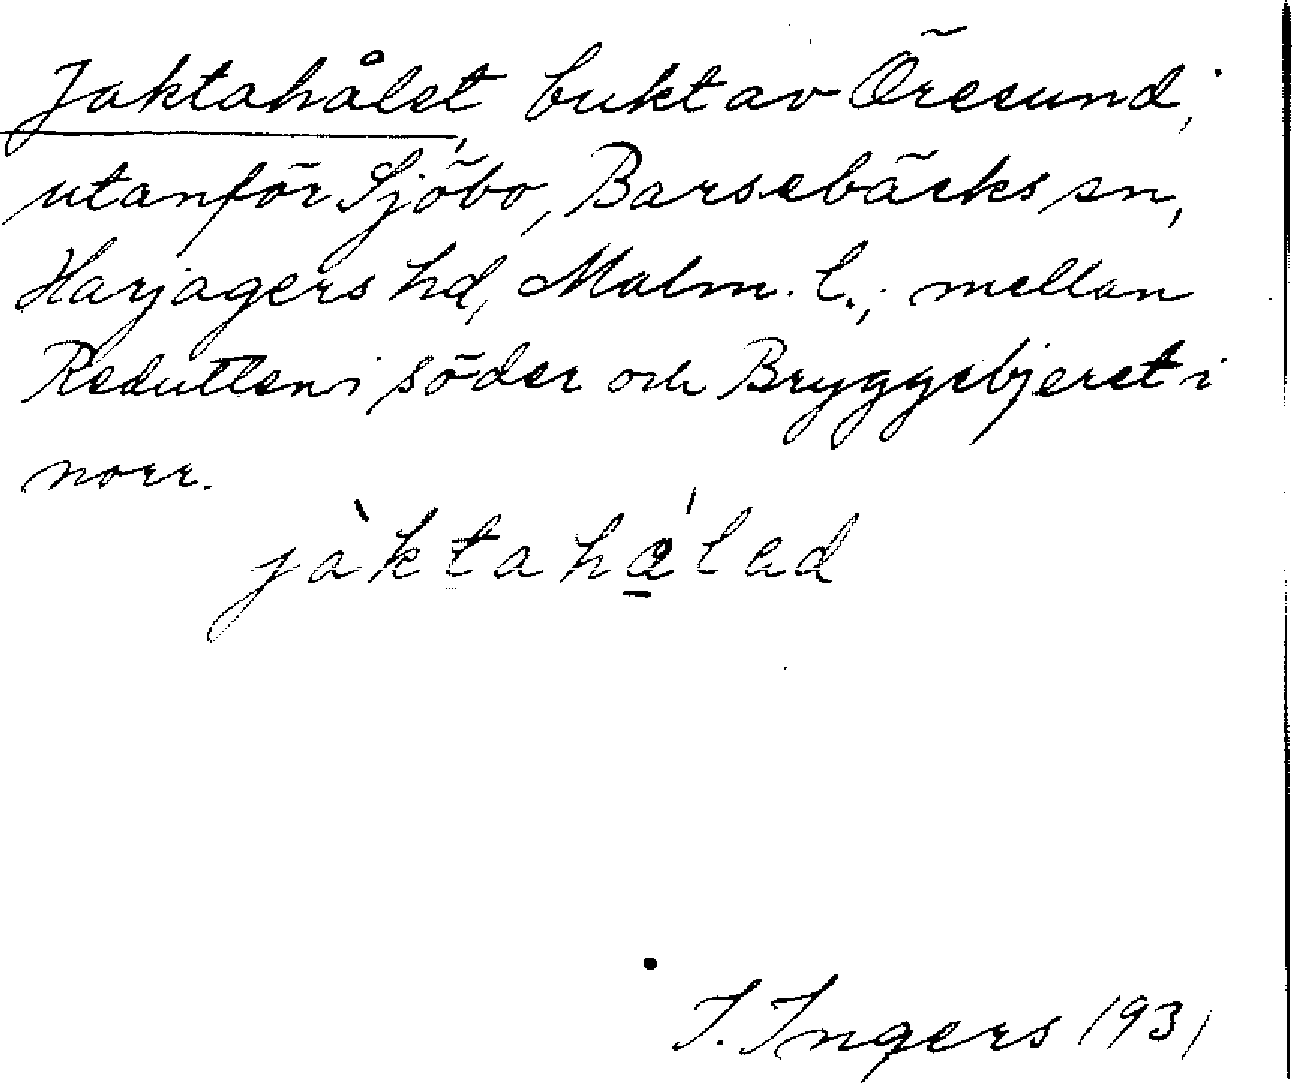 Jaktahålet, bukt av Öresund,
utanför Sjöbo, Barsebäcks sn,
Harjagers hd, Malm. l.; mellan
Redutten i söder och Bryggebjeret i
norr.
jàktahálad
I. Ingers 1931